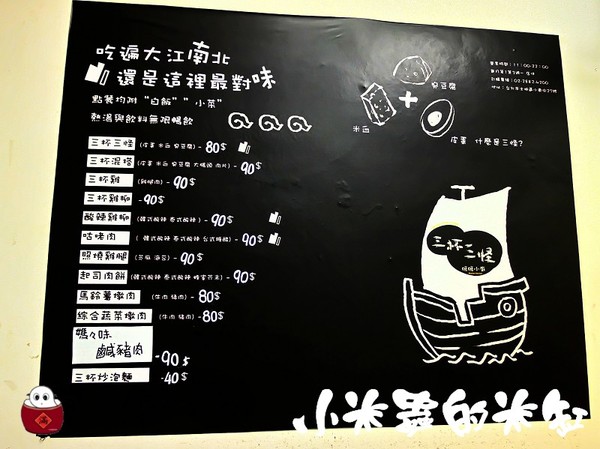 吃遍大江南北
還是這裡最對味
點餐均附“白飯”“小菜”
熱湯與飲料無限暢飲
米血
臭豆腐
+
皮蛋 什麼是三怪?
三杯三怪 (皮蛋 米血 臭豆腐) -80$
三杯混搭 (皮蛋 米血 臭豆腐 大腸頭 肉片) -90$
三杯雞 (雞腿肉) -90$
三杯雞柳 -90$
酸辣雞柳 (韓式酸辣 泰式酸辣) -90$
咕咾肉 (韓式酸辣 泰式酸辣 台式糖醋) -90$
照燒雞腿 -90$
起司肉餅 (韓式酸辣 泰式酸辣 蜂蜜芥末) -90$
馬鈴薯燉肉 (牛肉 豬肉) -80$
綜合蔬菜燉肉 (牛肉 豬肉) -80$
媽々味
鹹豬肉 -90$
三杯炒泡麵 -40$
三杯三怪
小米蟲的米缸